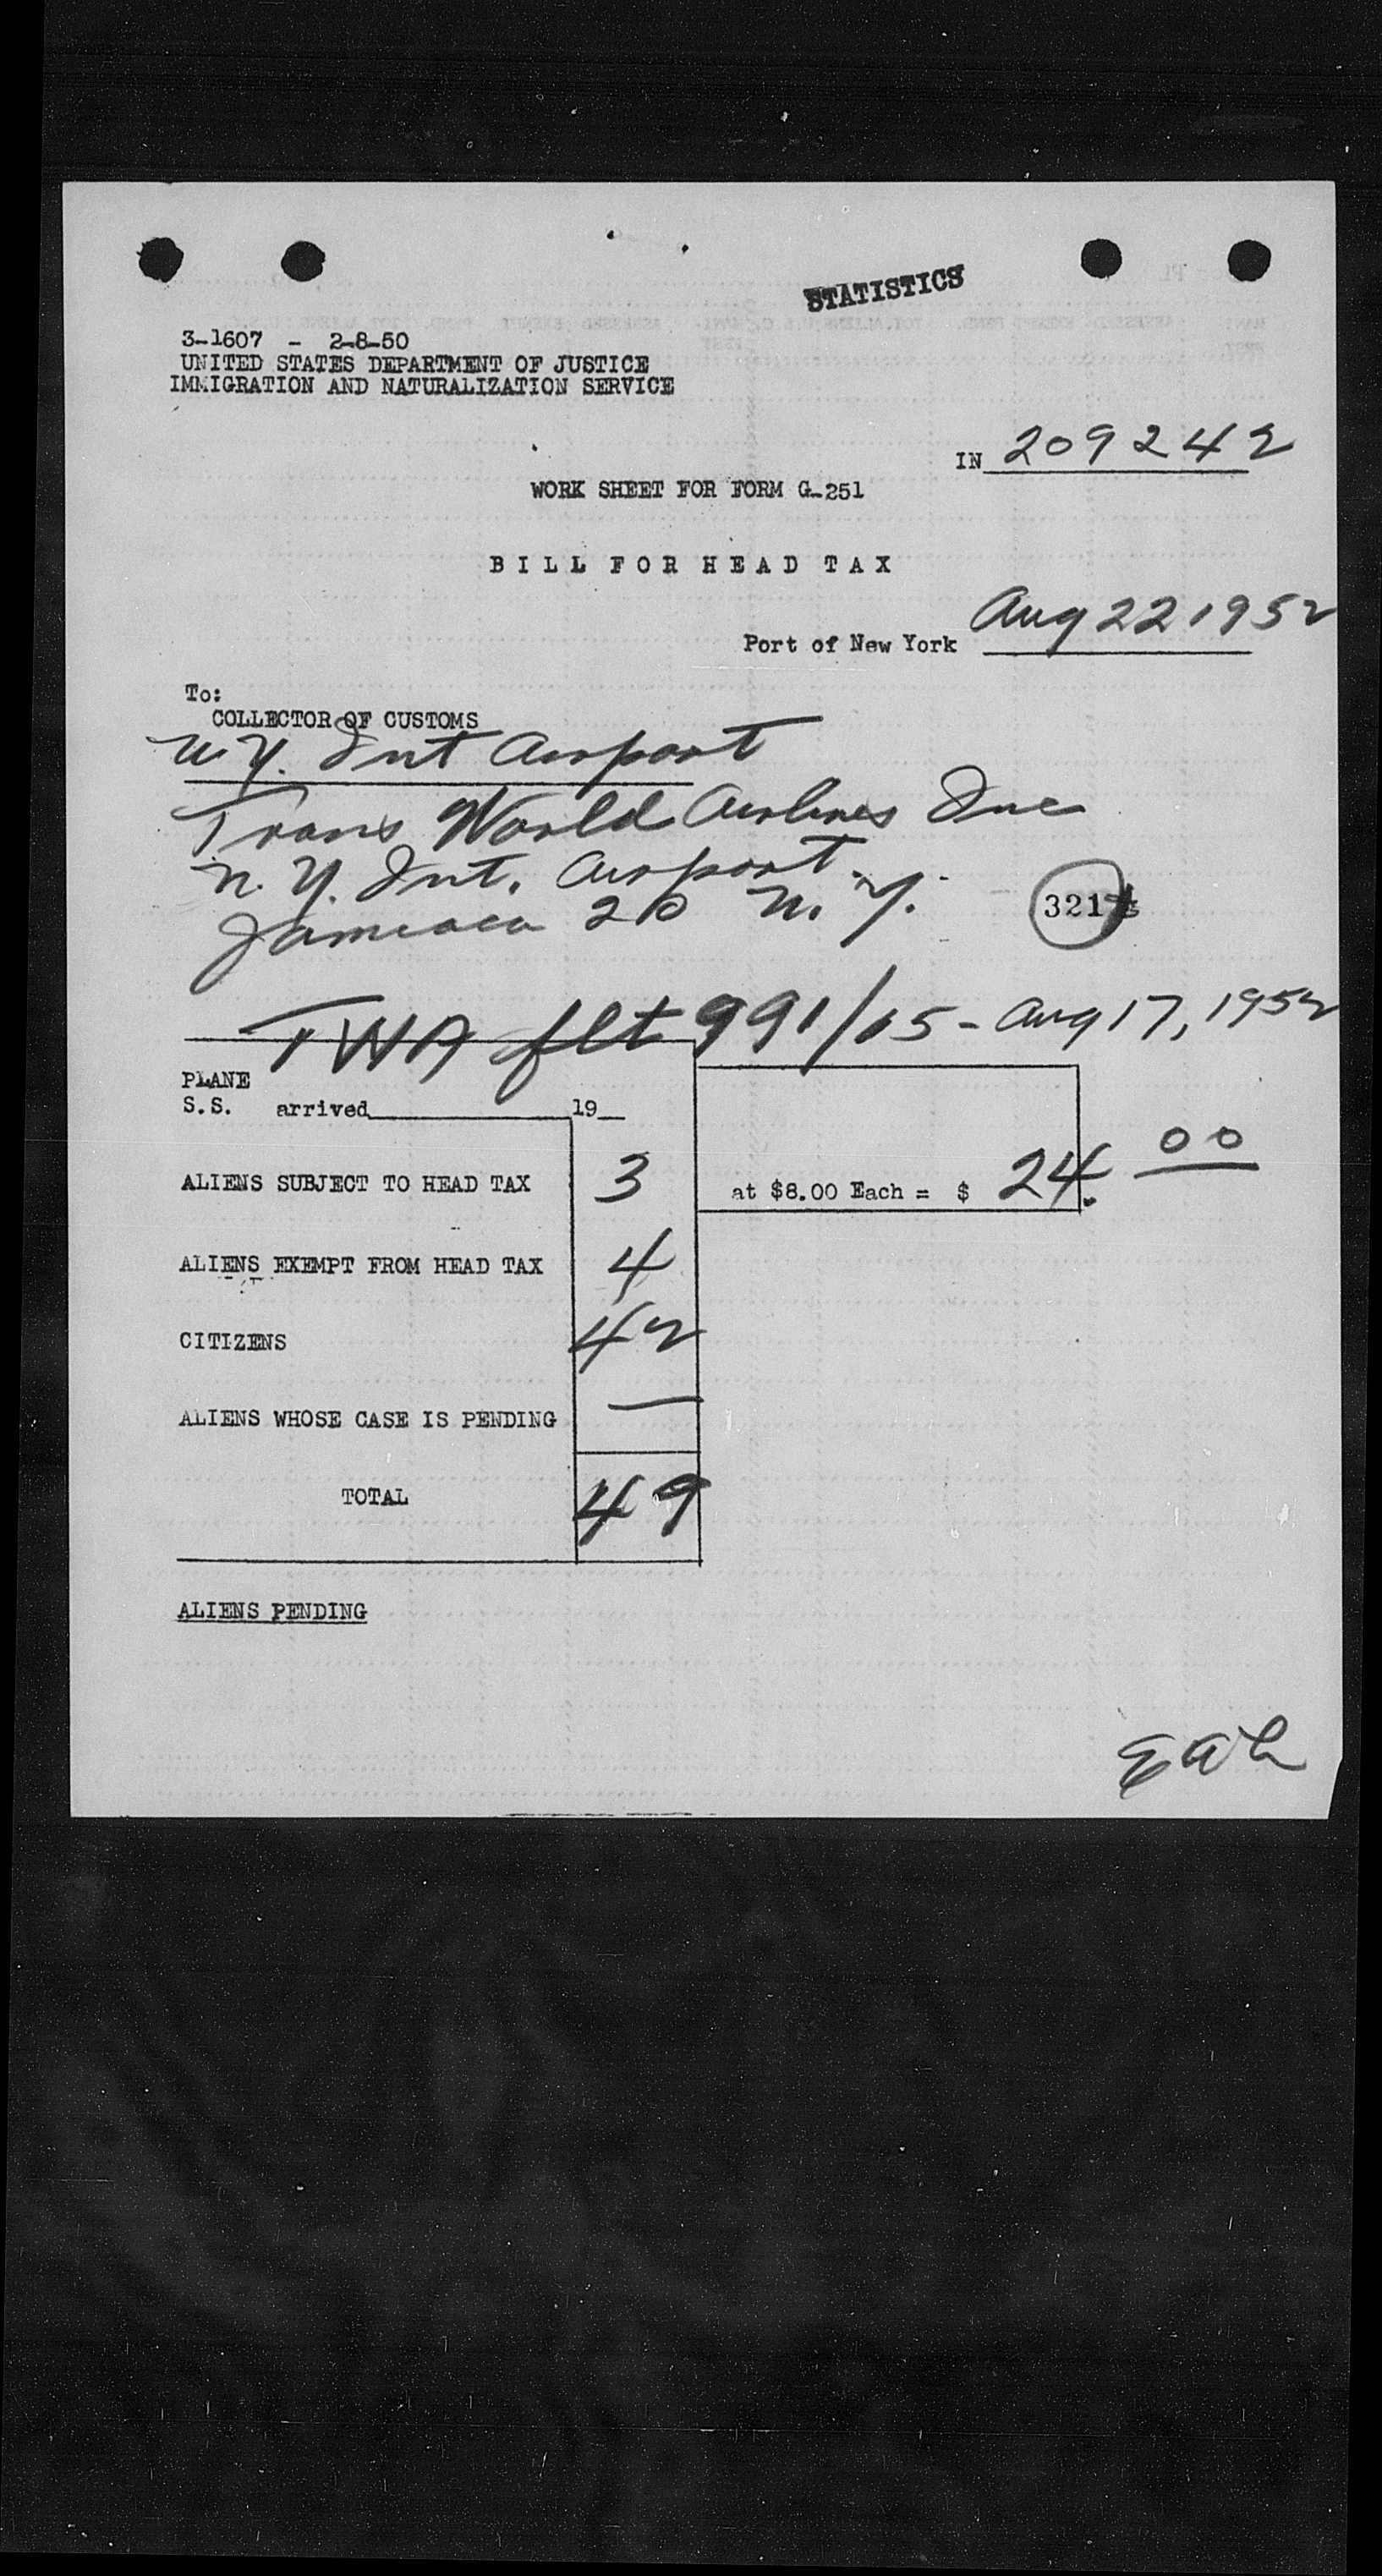 STATISTICS
3-1607 - 2-8-50
UNITED STATES DEPARTMENT OF JUSTICE
IMMIGRATION AND NATURALIZATION SERVICE
IN 209242
WORK SHEET FOR FORM G-251
BILL FOR HEAD TAX
Aug 22 1952
Port of New York
To:
COLLECTOR OF CUSTOMS
N.Y. Int Airport
Trans World Airlines Inc
N.Y. Int. Airport.
Jamaica 20 N.Y.
321
TWA flt 991/15 - Aug 17, 1952
PLANE
S.S. arrived 19
ALIENS SUBJECT TO HEAD TAX 3 at $8.00 Each = $ 24.00
ALIENS EXEMPT FROM HEAD TAX 4
CITIZENS 42
ALIENS WHOSE CASE IS PENDING —
TOTAL 49
ALIENS PENDING